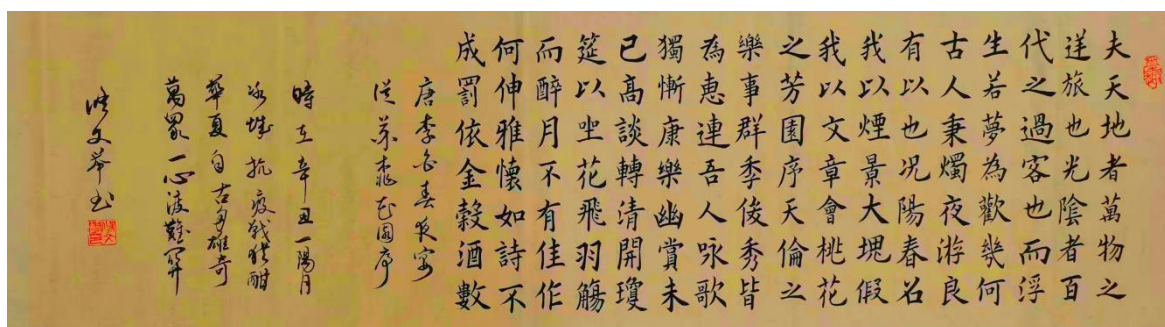 夫天地者萬物之
逆旅也光陰者百
代之過客也而浮
生若夢為歡幾何
古人秉燭夜游良
有以也況陽春召
我以煙景大塊假
我以文章會桃花
之芳園序天倫之
樂事群季俊秀皆
為惠連吾人咏歌
獨慚康樂幽賞未
已高談轉清開瓊
筵以坐花飛羽觴
而醉月不有佳作
何伸雅懷如詩不
成罰依金榖酒數
唐李白春夜宴
從弟桃花園序
時在辛丑一陽月
冰城抗疫戰猶酣
華夏自古多雄奇
萬眾一心渡難關
文举书